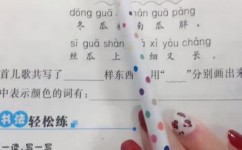 dōng guā nán guā pàng
冬瓜 南瓜胖，
sī guā shàn xì yòu chāng
丝瓜上 细又长。
首儿歌共写了 样东西 用“ ”分别画出来
中表示颜色的词有：
书法 轻松练
一读，写一写